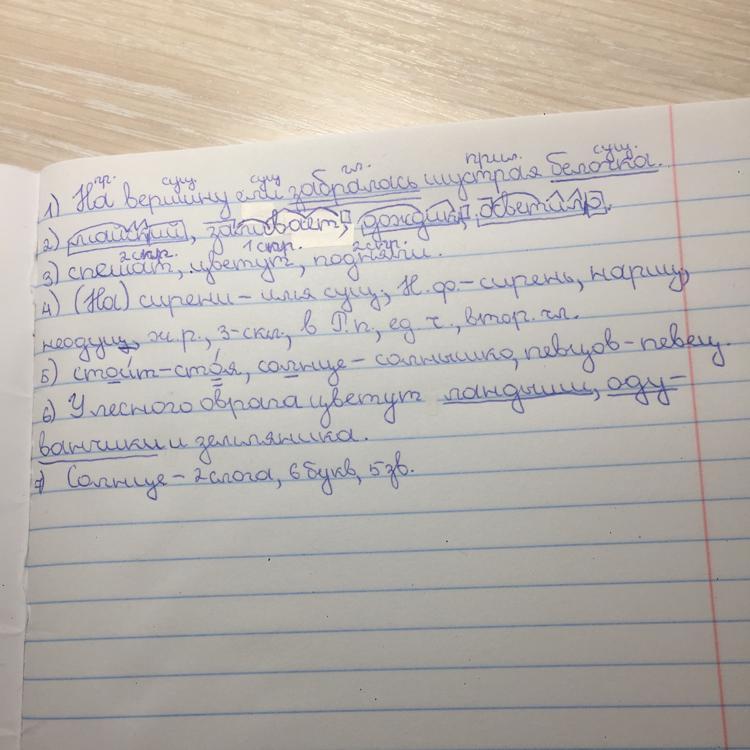 пр. сущ. сущ гл. прил. сущ.
1) На вершину ели забралась шустрая белочка.
2) майский, запивает, дождик, осветил.
2 спр. 1 спр. 2 спр.
3) спешат, цветут, подняли.
4) (На) сирени – имя сущ., Н.ф. – сирень, нариц,
неодуш, ж.р., 3-скл., в П.п., ед.ч., втор. чл.
5) стоит – стоя, солнце – солнышко, певцов – певец.
6) У лесного оврага цветут ландыши, оду-
ванчики и земляника.
7) Солнце – 2 слога, 6 букв, 5 зв.